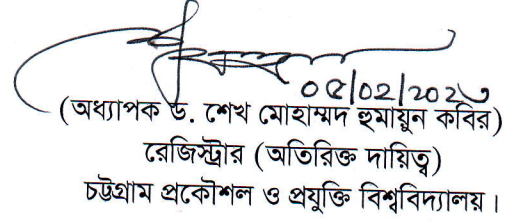 ০৫/০২/২০২৩
(অধ্যাপক ড. শেখ মোহাম্মদ হুমায়ুন কবির)
রেজিস্ট্রার (অতিরিক্ত দায়িত্ব)
চট্টগ্রাম প্রকৌশল ও প্রযুক্তি বিশ্ববিদ্যালয়।